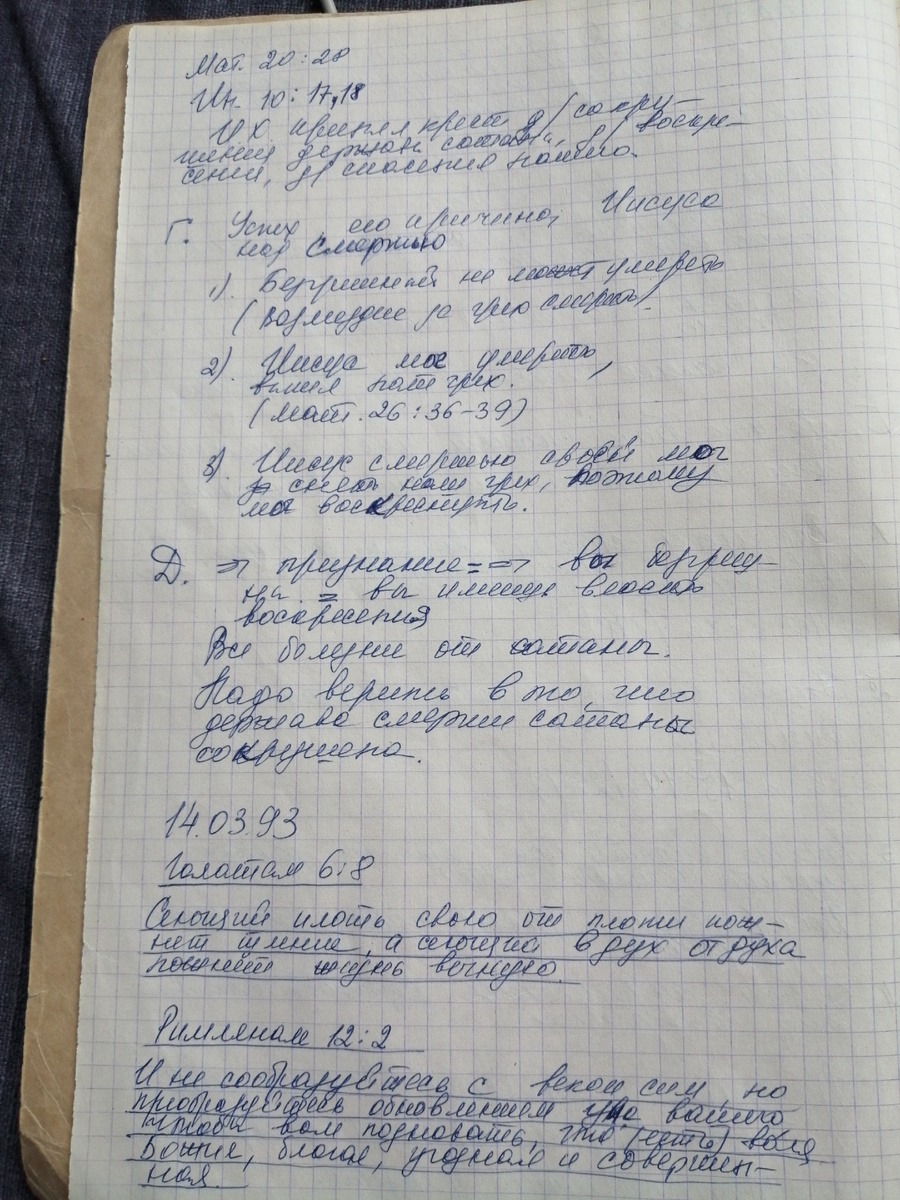 Мат. 20:28
Ин. 10:17,18
И.Х. принял крест д/ сокру-
шения держав сатаны, д/ воскре-
сения, д/ спасения нашего.
Г. Успех, его причина, Иисуса
над смертью
1). Безгрешный не может умереть
(возмездие за грех смерть)
2). Иисус мог умереть,
выпил наш грех.
(Матт. 26:36-39)
3). Иисус смертью своей мог
снять наш грех, поэтому
мог воскреснуть.
Д. ⇒ признание =⇒ вы безгреш-
ны = вы имеете власть
воскресения
Все болезни от сатаны.
Надо верить в то, что
держава смерти сатаны
сокрушена.
14.03.93
Галатам 6:8
Сеющий плоть свою от плоти пож-
нет тление, а сеющий в дух от духа
пожнет жизнь вечную.
Римлянам 12:2
И не сообразуйтесь с веком сим, но
преобразуйтесь обновлением ума вашего
чтобы вам познавать, что (есть) воля
Божия, благая, угодная и совершен-
ная.